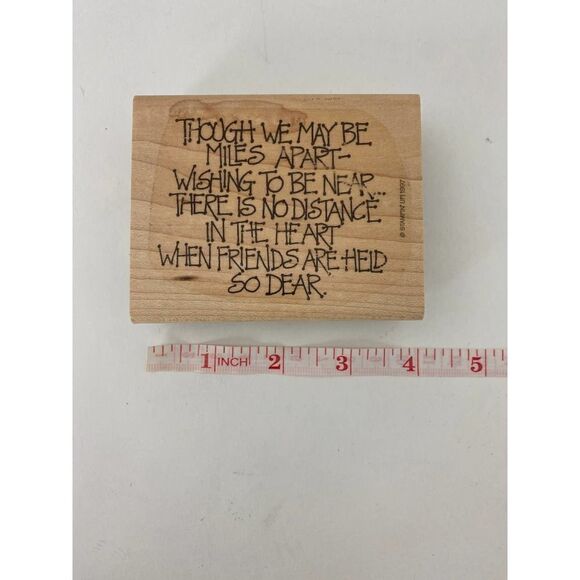 THOUGH WE MAY BE
MILES APART-
WISHING TO BE NEAR...
THERE IS NO DISTANCE
IN THE HEART
WHEN FRIENDS ARE HELD
SO DEAR.
© STAMPIN' UP! 1997
1 INCH 2 3 4 5